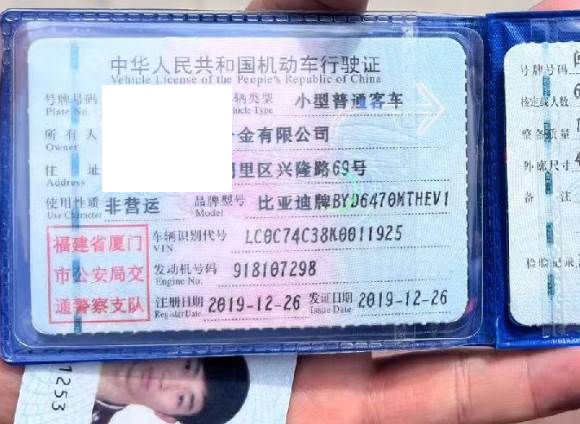 中华人民共和国机动车行驶证
Vehicle License of the People's Republic of China
号牌号码 车辆类型 小型普通客车
Plate No. Vehicle Type
所有人 金有限公司
Owner
住址 里区兴隆路69号
Address
使用性质 非营运 品牌型号 比亚迪牌BYD6470MTHEV1
Use Character Model
福建省厦门 车辆识别代号 LC0C74C38K0011925
VIN
市公安局交 发动机号码 918107298
Engine No.
通警察支队 注册日期 2019-12-26 发证日期 2019-12-26
Register Date Issue Date
号牌号码
核定载人数 6
整备质量 1
外廓尺寸
备注
检验记录
1253